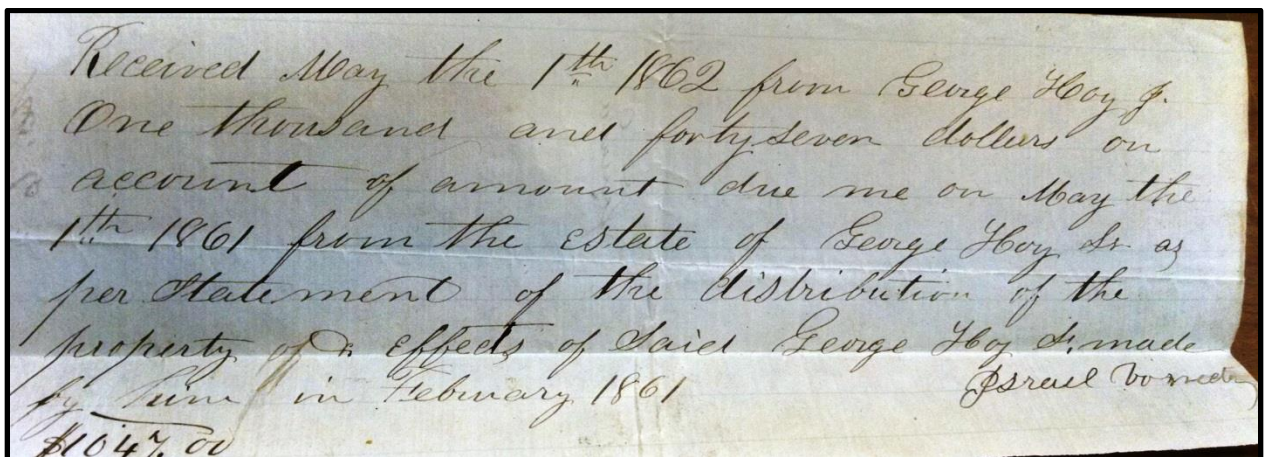 Received May the 1th 1862 from George Hoy J.
One thousand and forty seven dollers on
account of amount due me on May the
1th 1861 from the estate of George Hoy Sr as
per Statement of the distribution of the
property of & effects of Said George Hoy Sr. made
by in February 1861
Israel
$1047.00